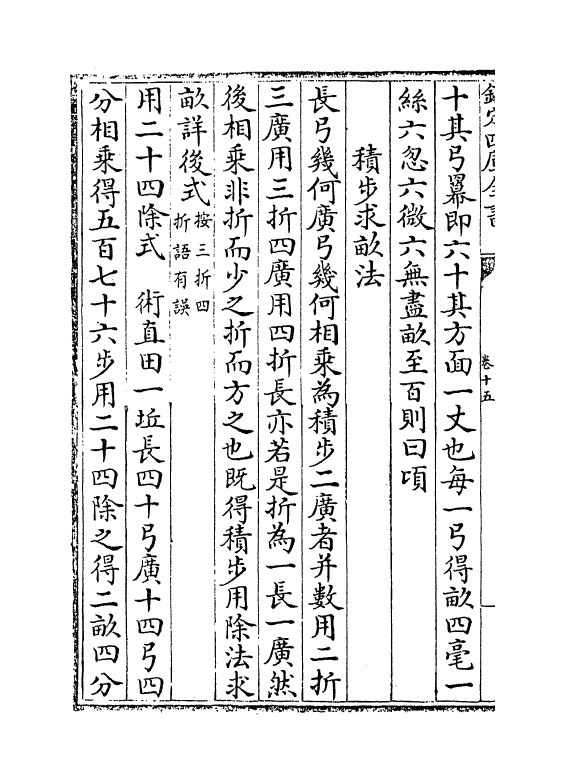 欽定四庫全書
卷十五
十其弓羃即六十其方面一丈也每一弓得畝四毫一
絲六忽六微六無盡畝至百則曰頃
積步求畝法
長弓幾何廣弓幾何相乘為積步二廣者并數用二折
三廣用三折四廣用四折長亦若是折為一長一廣然
後相乘非折而少之折而方之也既得積步用除法求
畝詳後式按三折四折語有誤
用二十四除式　術直田一坵長四十弓廣十四弓四
分相乘得五百七十六步用二十四除之得二畝四分